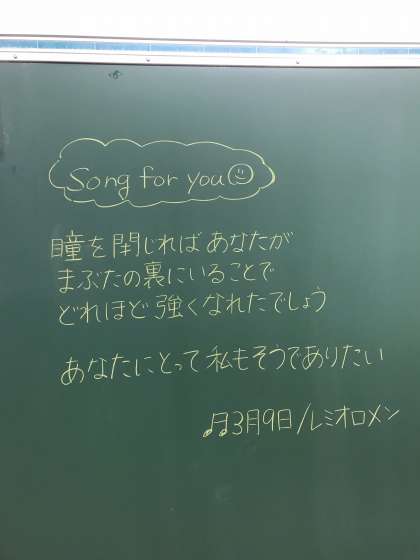 Song for you☺
瞳を閉じればあなたが
まぶたの裏にいることで
どれほど強くなれたでしょう
あなたにとって私もそうでありたい
♫3月9日/レミオロメン